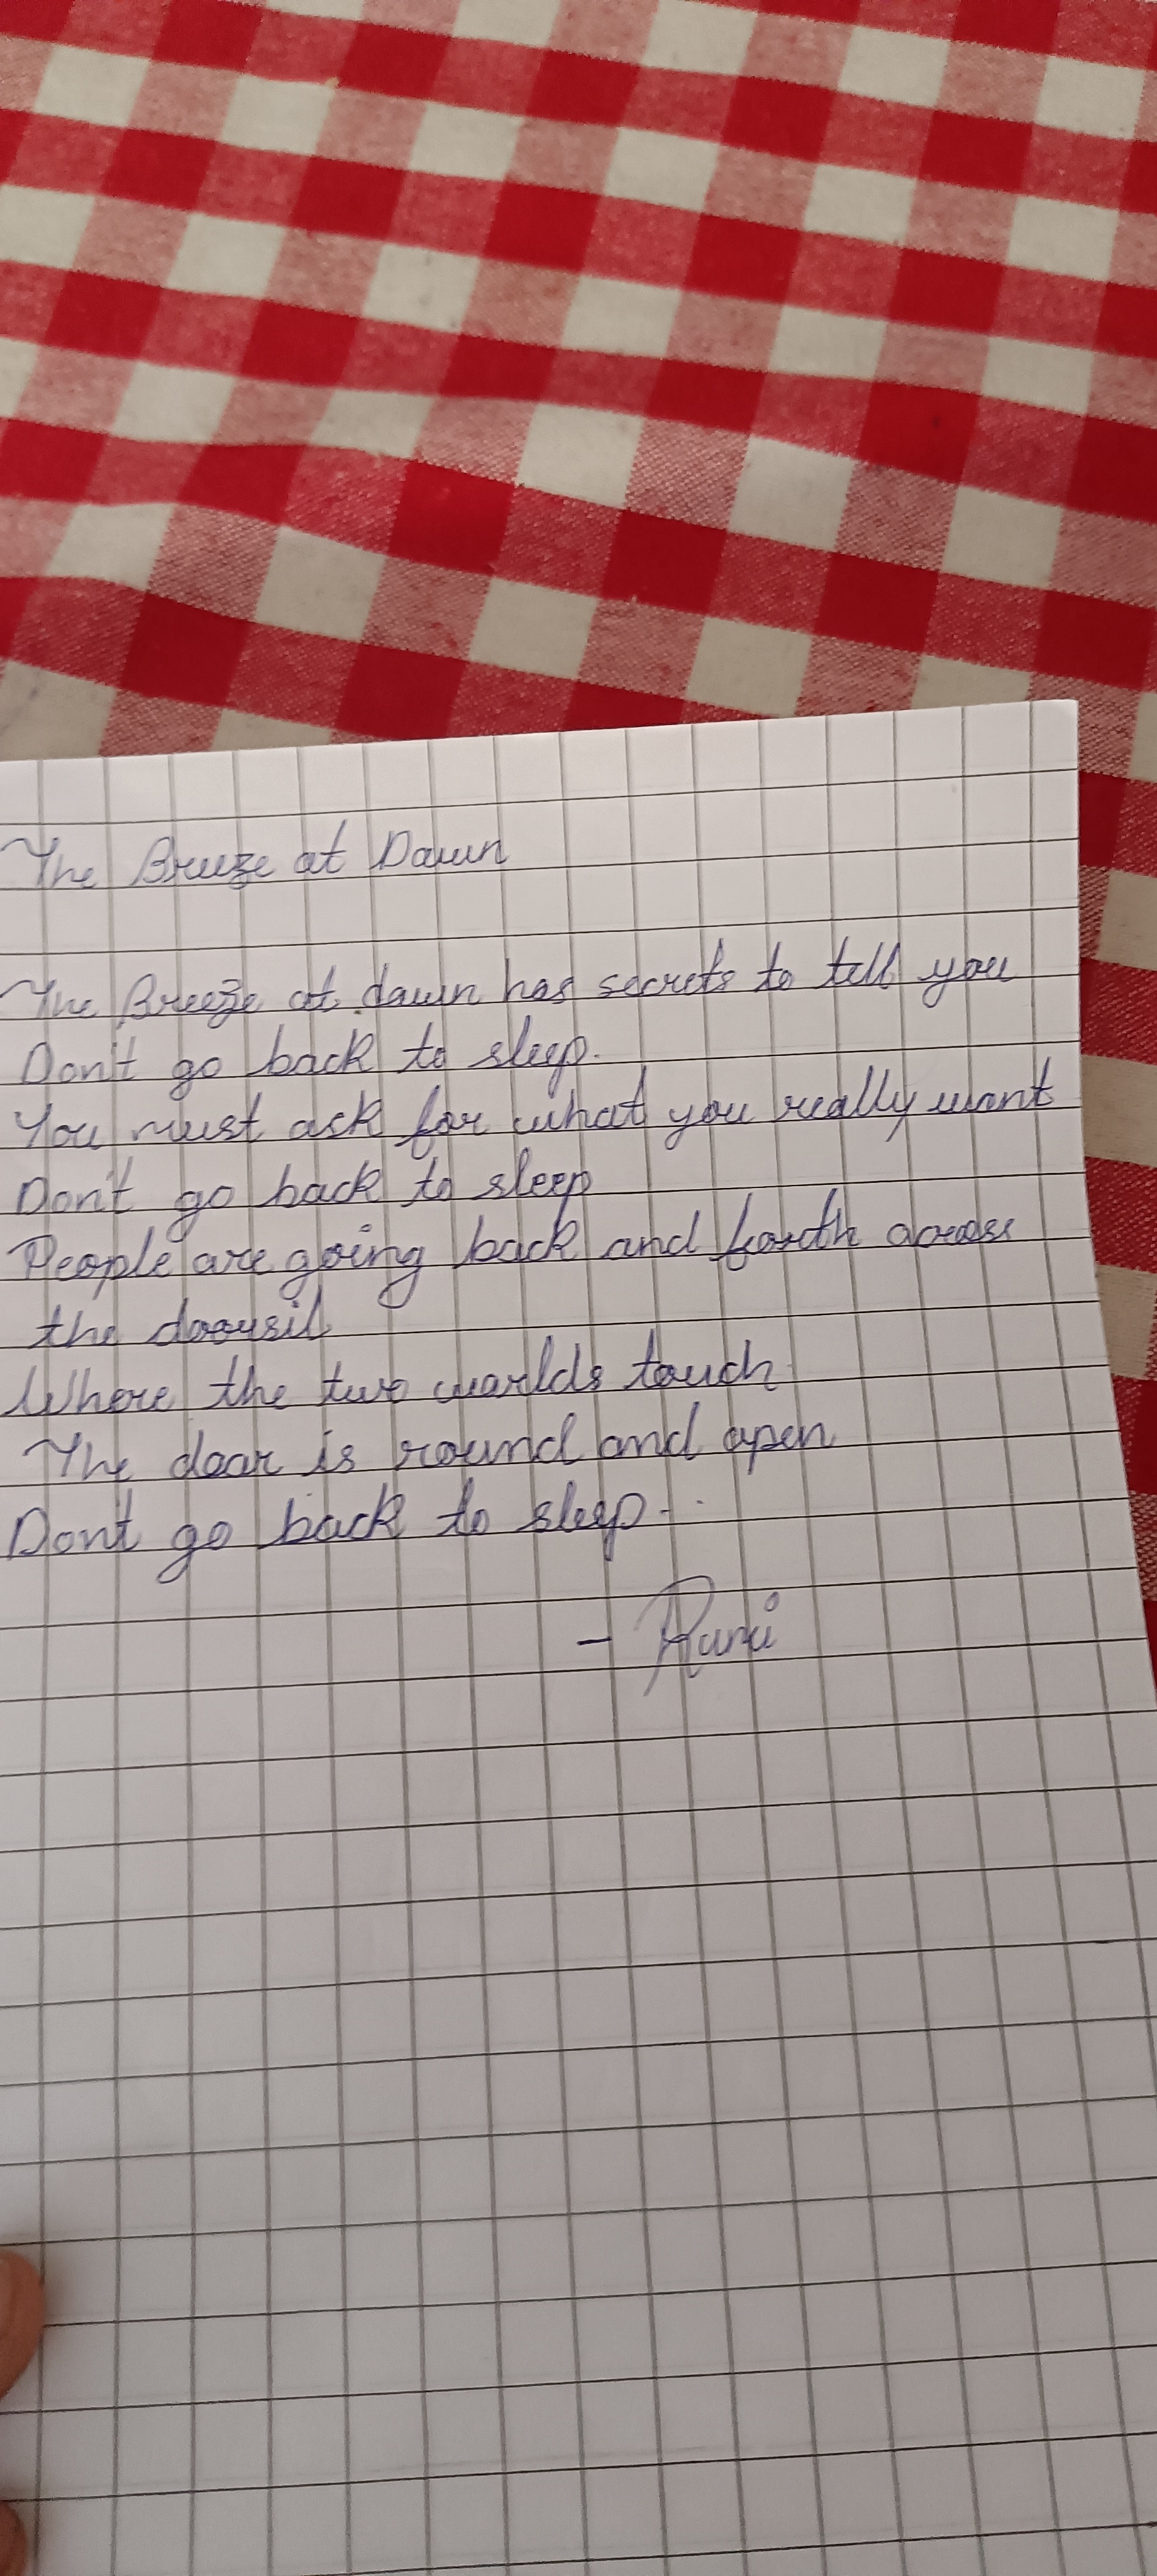 The Breeze at Dawn
The Breeze at dawn has secrets to tell you
Don't go back to sleep.
You must ask for what you really want
Don't go back to sleep
People are going back and forth across
the doorsil
Where the two worlds touch
The door is round and open
Don't go back to sleep.
- Rumi